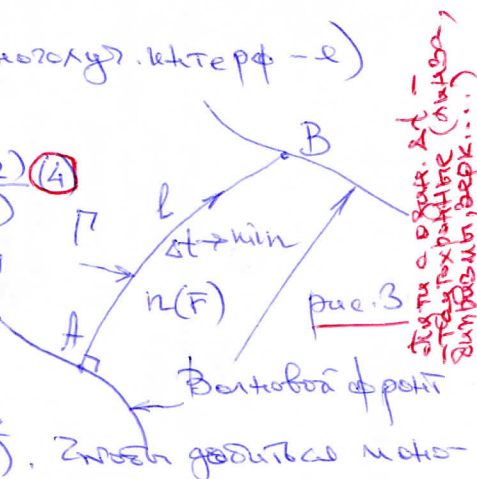 ноголуч. интерф-е)
(4)
B
Г
l
Δt→min
n(r̄)
A
рис. 3
Волновой фронт
). Чтобы добиться моно-
Пути с один. Δt –
– таутохронные (линза,